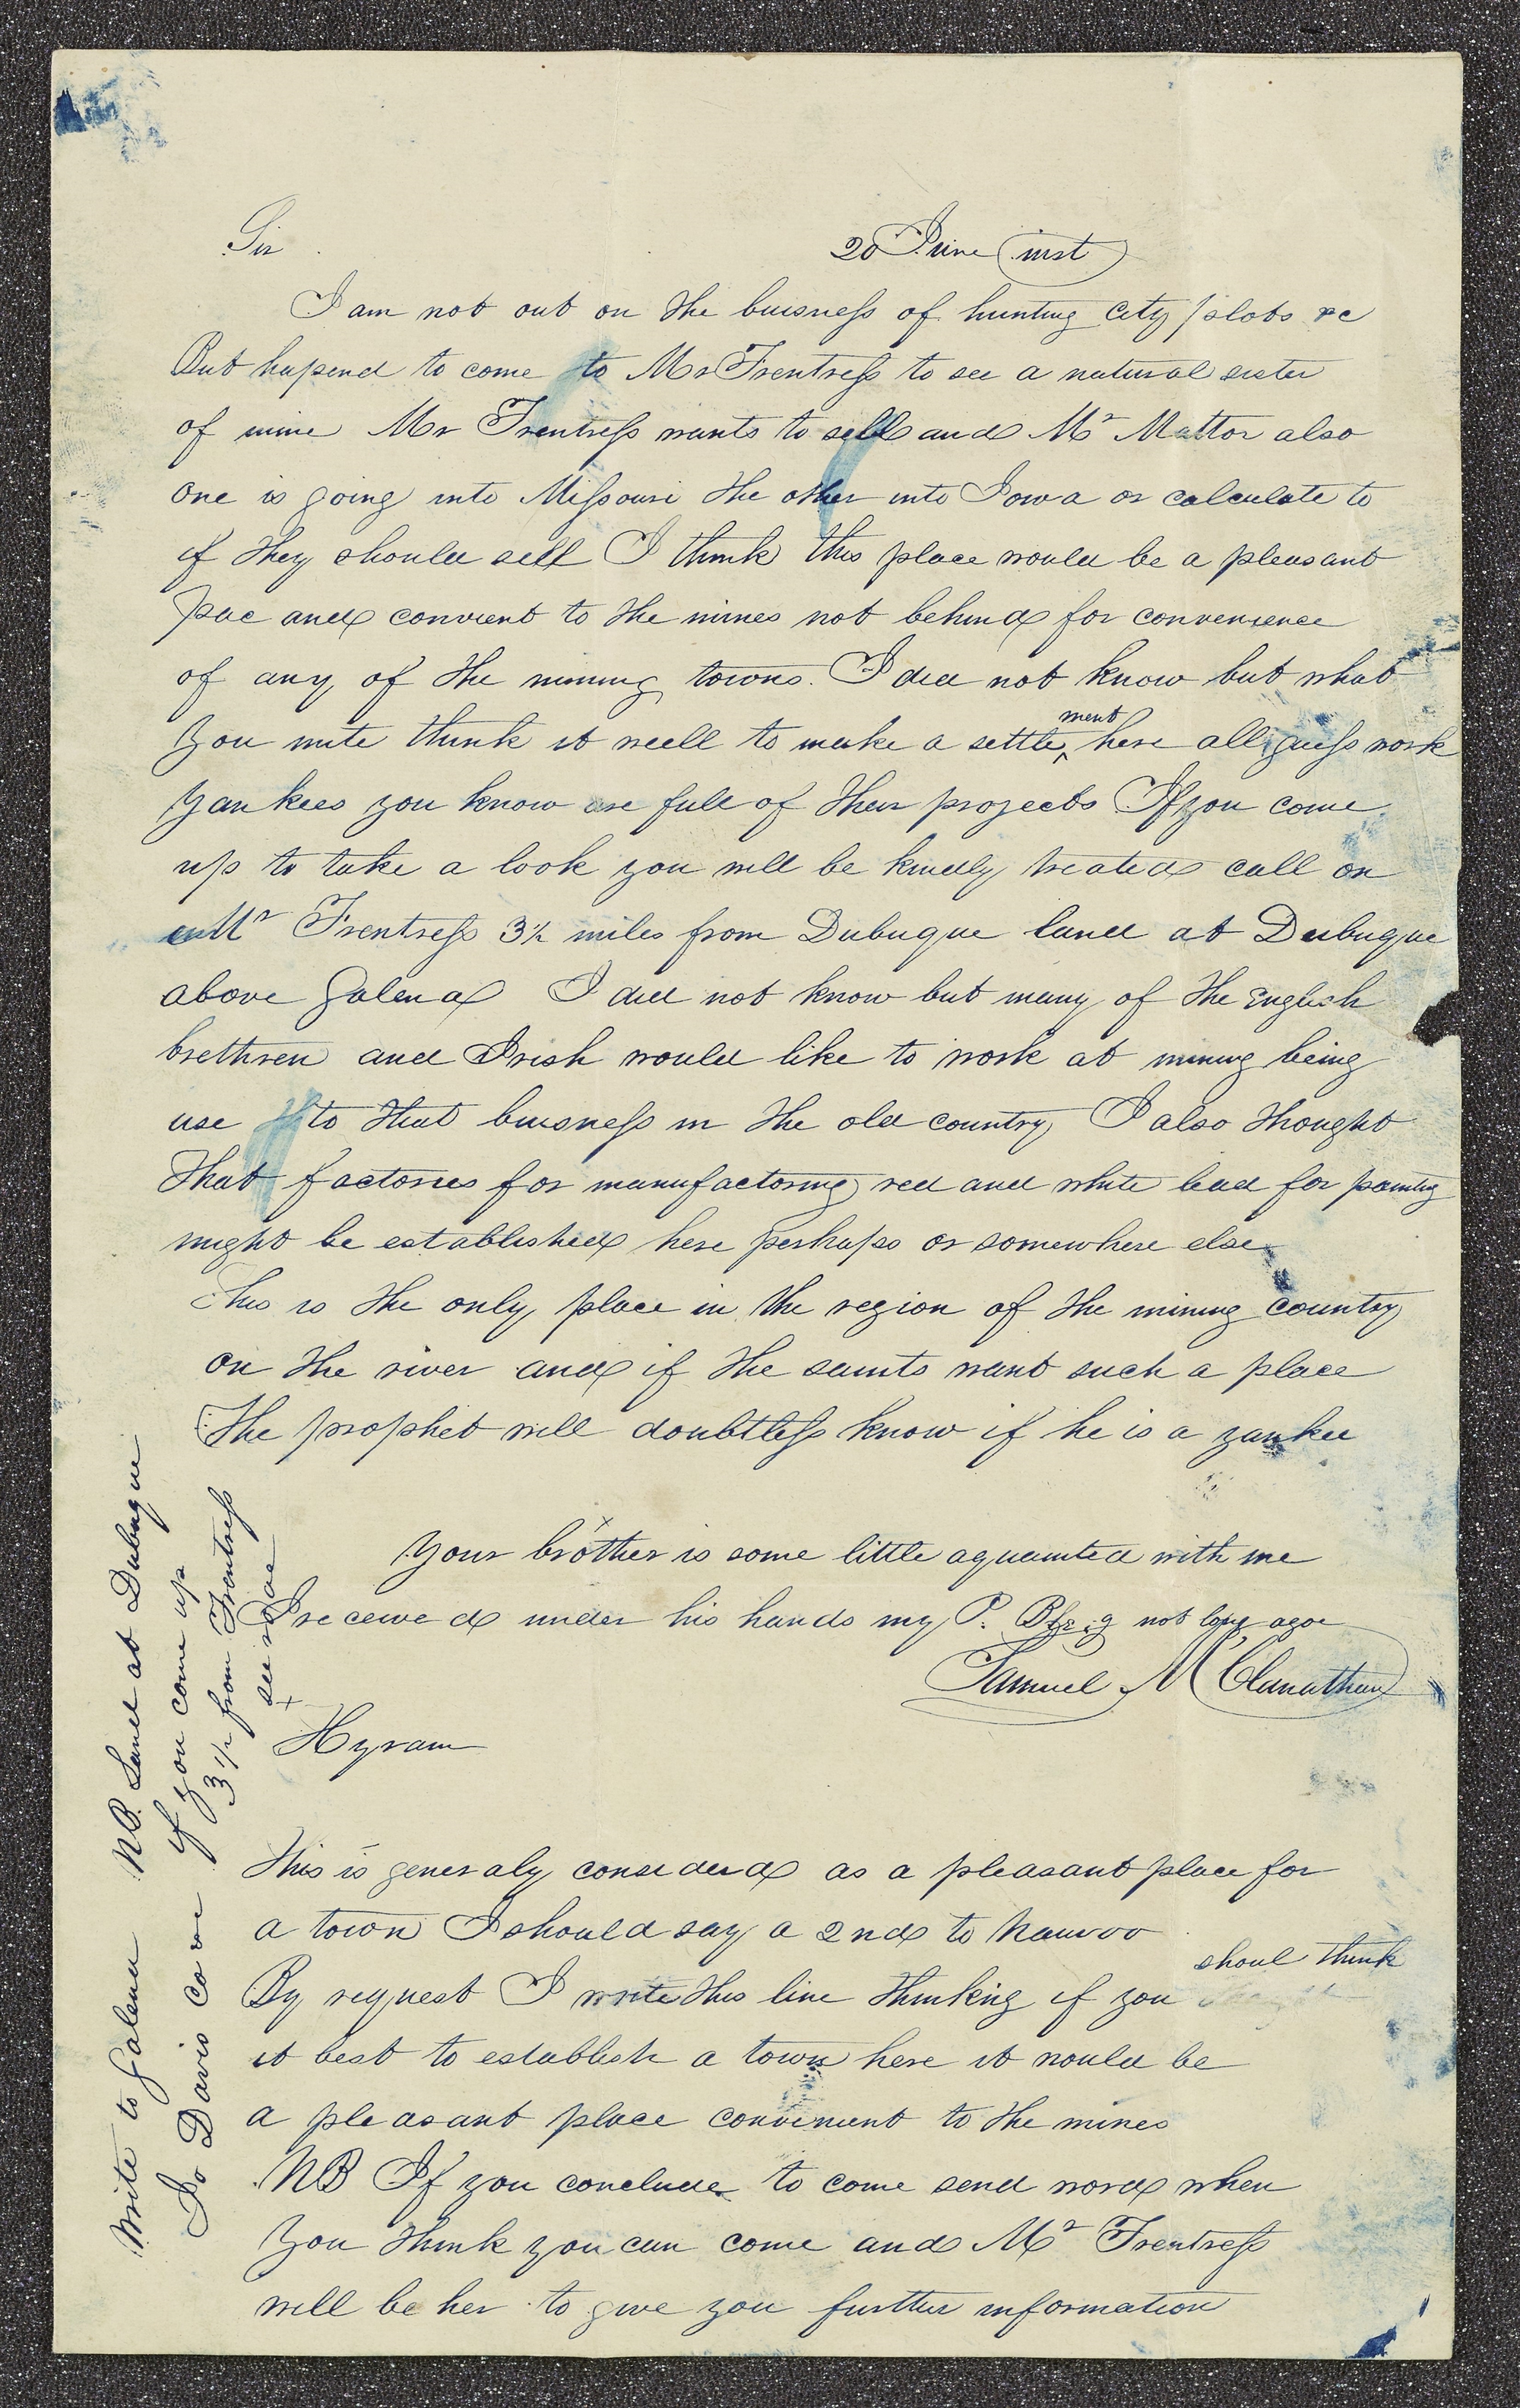 Sir 20 June inst
I am not out on the buisness of hunting city plots &c
But hapend to come to Mr Frentress to see a natural sister
of mine Mr Frentress wants to sell and Mr Mattor also
one is going into Missouri the other into Iowa or calculate to
if they should sell I think this place would be a pleasant
pace and convient to the mines not behind for convenience
of any of the mining towns. I did not know but what
you mite think it well to make a settlement here all guess work
yankees you know are full of their projects If you come
up to take a look you will be kindly treated call on
Mr Frentress 3½ miles from Dubuque land at Dubuque
above Galena I did not know but many of the English
brethren and Irish would like to work at mining being
use to that buisness in the old country I also thought
that factories for manufactoring red and white lead for painting
might be established here perhaps or somewhere else
This is the only place in the region of the mining country
on the river and if the saints want such a place
The prophet will doubtless know if he is a yankee
your brother x is some little aquainted with me
I received under his hands my P. not long agoe
Samuel McClanathan
x Hyram
This is generaly considerd as a pleasant place for
a town I should say a 2nd to Nauvoo
By request I write this line thinking if you shoul think
it best to establish a town here it would be
a pleasant place convenient to the mines
NB If you conclude to come send word when
you think you can come and Mr Frentress
will be her to give you further information
Write to Galena NB. Land at Dubuque
Davis care if you come up
3½ from Frentress
see